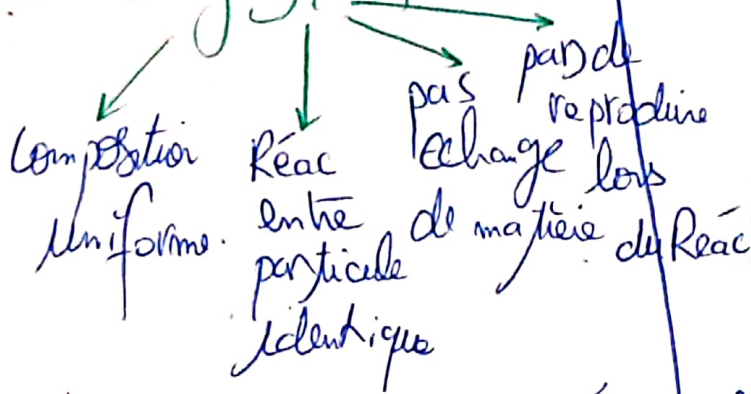 Composition
uniforme.
Réac
entre
particule
identique
pas
echange
de matière
pas de
reproduire
lors
du Réac